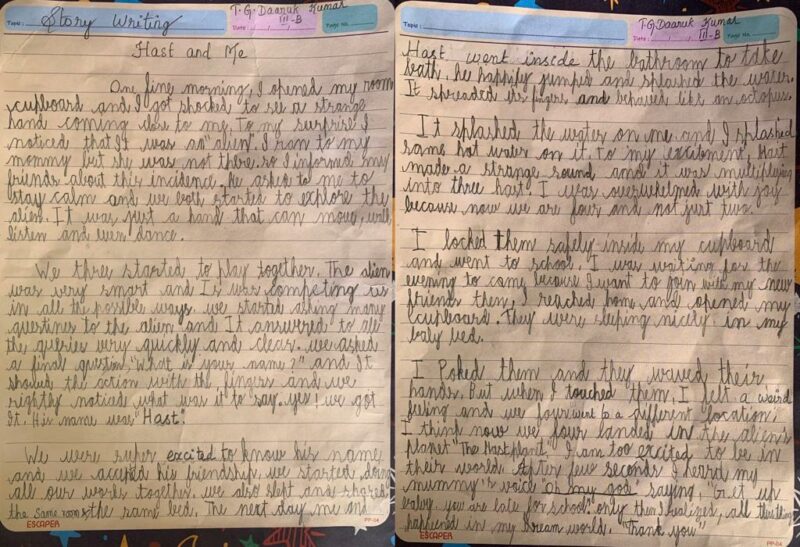 Topic: Story Writing
T.G. Daaruk Kumar
III-B
Date: Page No.
Hast and Me
One fine morning, I opened my room
cupboard and I got shocked to see a strange
hand coming close to me. To my surprise I
noticed that It was an alien. I ran to my
mommy but she was not there. so I informed my
friends about this incidence. he asked to me to
stay calm and we both started to explore the
alien. It was just a hand that can move, walk
listen and even dance.
We three started to play together. The alien
was very smart and It was competing us
in all the possible ways. we started asking many
questines to the alien and It answered to all
the queries very quickly and clear. we asked
a final question "What is your name?" and It
showed the action with the fingers and we
rightly noticed what was it to say. yes! we got
It. His name was "Hast".
We were super excited to know his name
and we accepted his friendship. we started doing
all our works together. we also slept and shared
the same room & the same bed. The next day me and
ESCAPER
PP-04
Topic:
T.G. Daaruk Kumar
III-B
Date: Page No.
Hast went inside the bathroom to take
bath. he happily jumped and splashed the water.
It spreaded its fingers and behaved like an octopus.
It splashed the water on me and I splashed
some hot water on it. To my excitment, Hast
made a strange sound and it was multipleying
into three hast. I was overwhelmed with joy
because now we are four and not just two.
I locked them safely inside my cupboard
and went to school. I was waiting for the
evening to come because I want to join with my new
friends then, I reached home and opened my
cupboard. They were sleeping nicely in my
baby bed.
I Poked them and they waved their
hands. But when I touched them, I felt a weird
feeling and we four went to a different location.
I think now we four landed in the alien's
planet "The Hast planet". I am too excited to be in
their world. After few seconds I heard my
mummy's voice "oh my god" saying, "Get up
you are late for school". only then I realized, all this thing
happened in my Dream world. "Thank you"
ESCAPER
PP-04